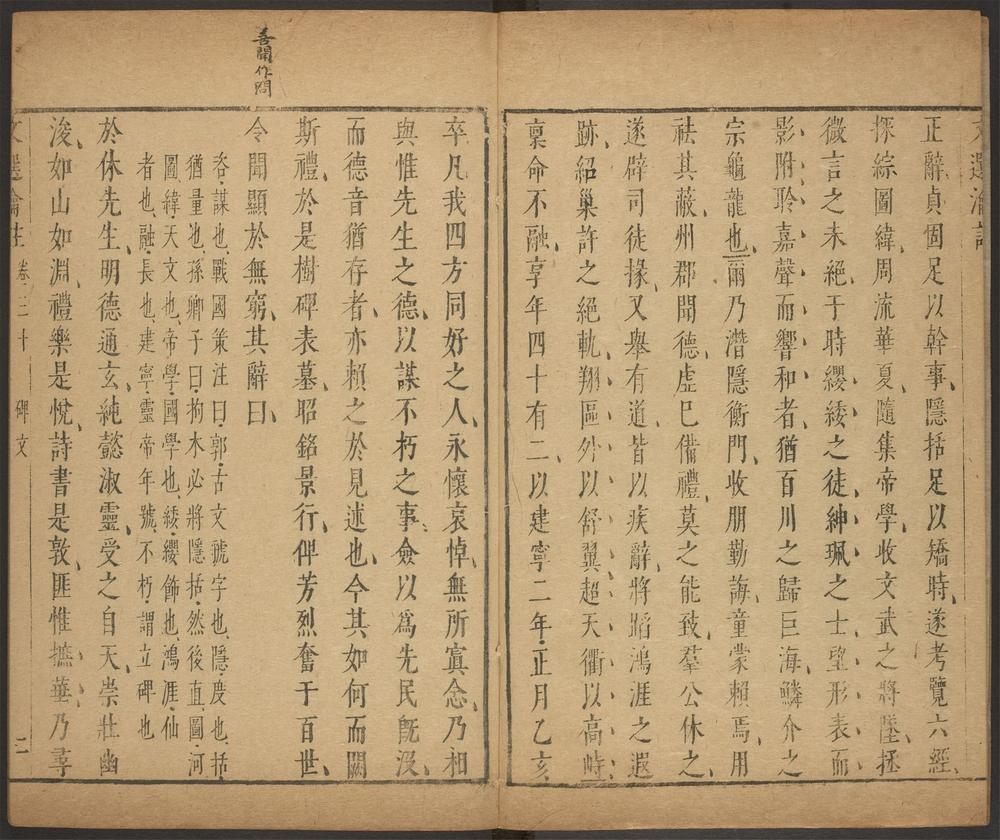 文選瀹註
正辭貞固足以幹事隱括足以矯時遂考覽六經
探綜圖緯周流華夏隨集帝學收文武之將墜拯
微言之未絕于時纓緌之徒紳珮之士望形表而
影附聆嘉聲而響和者猶百川之歸巨海鱗介之
宗龜龍也爾乃潛隱衡門收朋勤誨童蒙賴焉用
祛其蔽州郡聞德虛巳備禮莫之能致羣公休之
遂辟司徒掾又舉有道皆以疾辭將蹈鴻涯之遐
跡紹巢許之絕軌翔區外以舒翼超天衢以高峙
稟命不融享年四十有二以建寧二年正月乙亥
善聞作問
卒凡我四方同好之人永懷哀悼無所寘念乃相
與惟先生之德以謀不朽之事僉以爲先民旣沒
而德音猶存者亦賴之於見述也今其如何而闕
斯禮於是樹碑表墓昭銘景行俾芳烈奮于百世
令聞顯於無窮其辭曰
咨謀也戰國策注曰郭古文虢字也隱度也括
猶量也孫卿子曰拘木必將隱括然後直圖河
圖緯天文也帝學國學也緌纓飾也鴻涯仙
者也融長也建寧靈帝年號不朽謂立碑也
於休先生明德通玄純懿淑靈受之自天崇壯幽
浚如山如淵禮樂是悅詩書是敦匪惟摭華乃尋
文選瀹註 卷三十 碑文 二